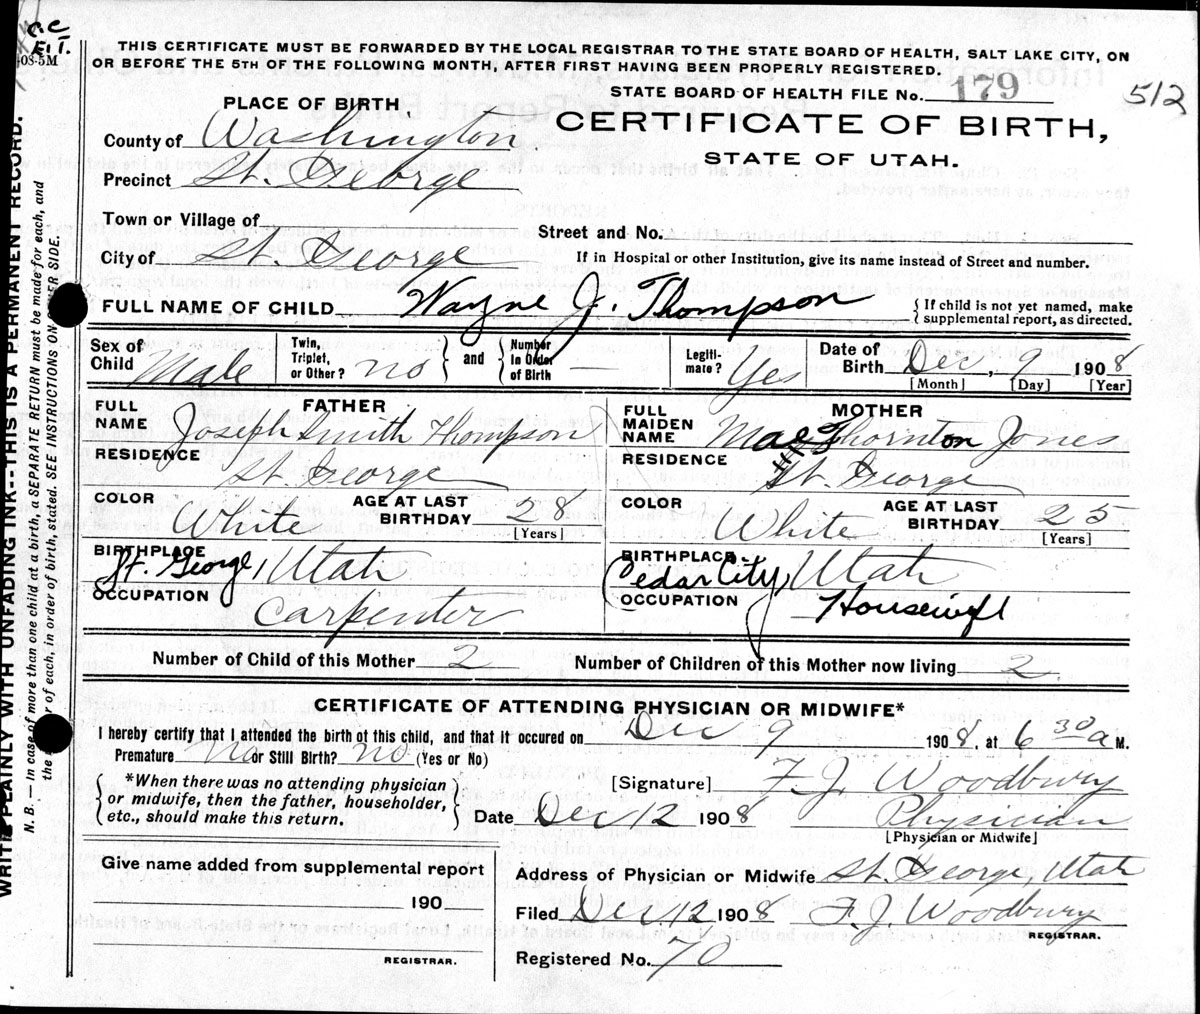 C.C.
E.T.
-08-5M
THIS CERTIFICATE MUST BE FORWARDED BY THE LOCAL REGISTRAR TO THE STATE BOARD OF HEALTH, SALT LAKE CITY, ON
OR BEFORE THE 5TH OF THE FOLLOWING MONTH, AFTER FIRST HAVING BEEN PROPERLY REGISTERED.
STATE BOARD OF HEALTH FILE No. 179
512
PLACE OF BIRTH
CERTIFICATE OF BIRTH,
STATE OF UTAH.
County of Washington
Precinct St. George
Town or Village of
Street and No.
City of St. George
If in Hospital or other Institution, give its name instead of Street and number.
FULL NAME OF CHILD Wayne J. Thompson { If child is not yet named, make supplemental report, as directed.
Sex of Child Male Twin, Triplet, or Other? no } and { Number in Order of Birth — Legitimate? Yes Date of Birth Dec, 9 1908
[Month] [Day] [Year]
FATHER
MOTHER
FULL NAME Joseph Smith Thompson
FULL MAIDEN NAME Mae Thornton Jones
RESIDENCE St. George
RESIDENCE St. George
COLOR White AGE AT LAST BIRTHDAY 28 [Years]
COLOR White AGE AT LAST BIRTHDAY 25 [Years]
BIRTHPLACE St. George, Utah
BIRTHPLACE Cedar City, Utah
OCCUPATION Carpenter
OCCUPATION Housewife
Number of Child of this Mother 2 Number of Children of this Mother now living 2
CERTIFICATE OF ATTENDING PHYSICIAN OR MIDWIFE*
I hereby certify that I attended the birth of this child, and that it occured on Dec 9 1908, at 6 30 a M.
Premature no or Still Birth? no (Yes or No)
*When there was no attending physician
or midwife, then the father, householder,
etc., should make this return.
[Signature] F. J. Woodbury
Date Dec 12 1908 Physician
[Physician or Midwife]
Give name added from supplemental report
190
REGISTRAR.
Address of Physician or Midwife St. George, Utah
Filed Dec 12 1908 F. J. Woodbury
REGISTRAR.
Registered No. 70
WRITE PLAINLY WITH UNFADING INK--THIS IS A PERMANENT RECORD.
N. B.—In case of more than one child at a birth, a SEPARATE RETURN must be made for each, and
the of each, in order of birth, stated. SEE INSTRUCTIONS ON OTHER SIDE.